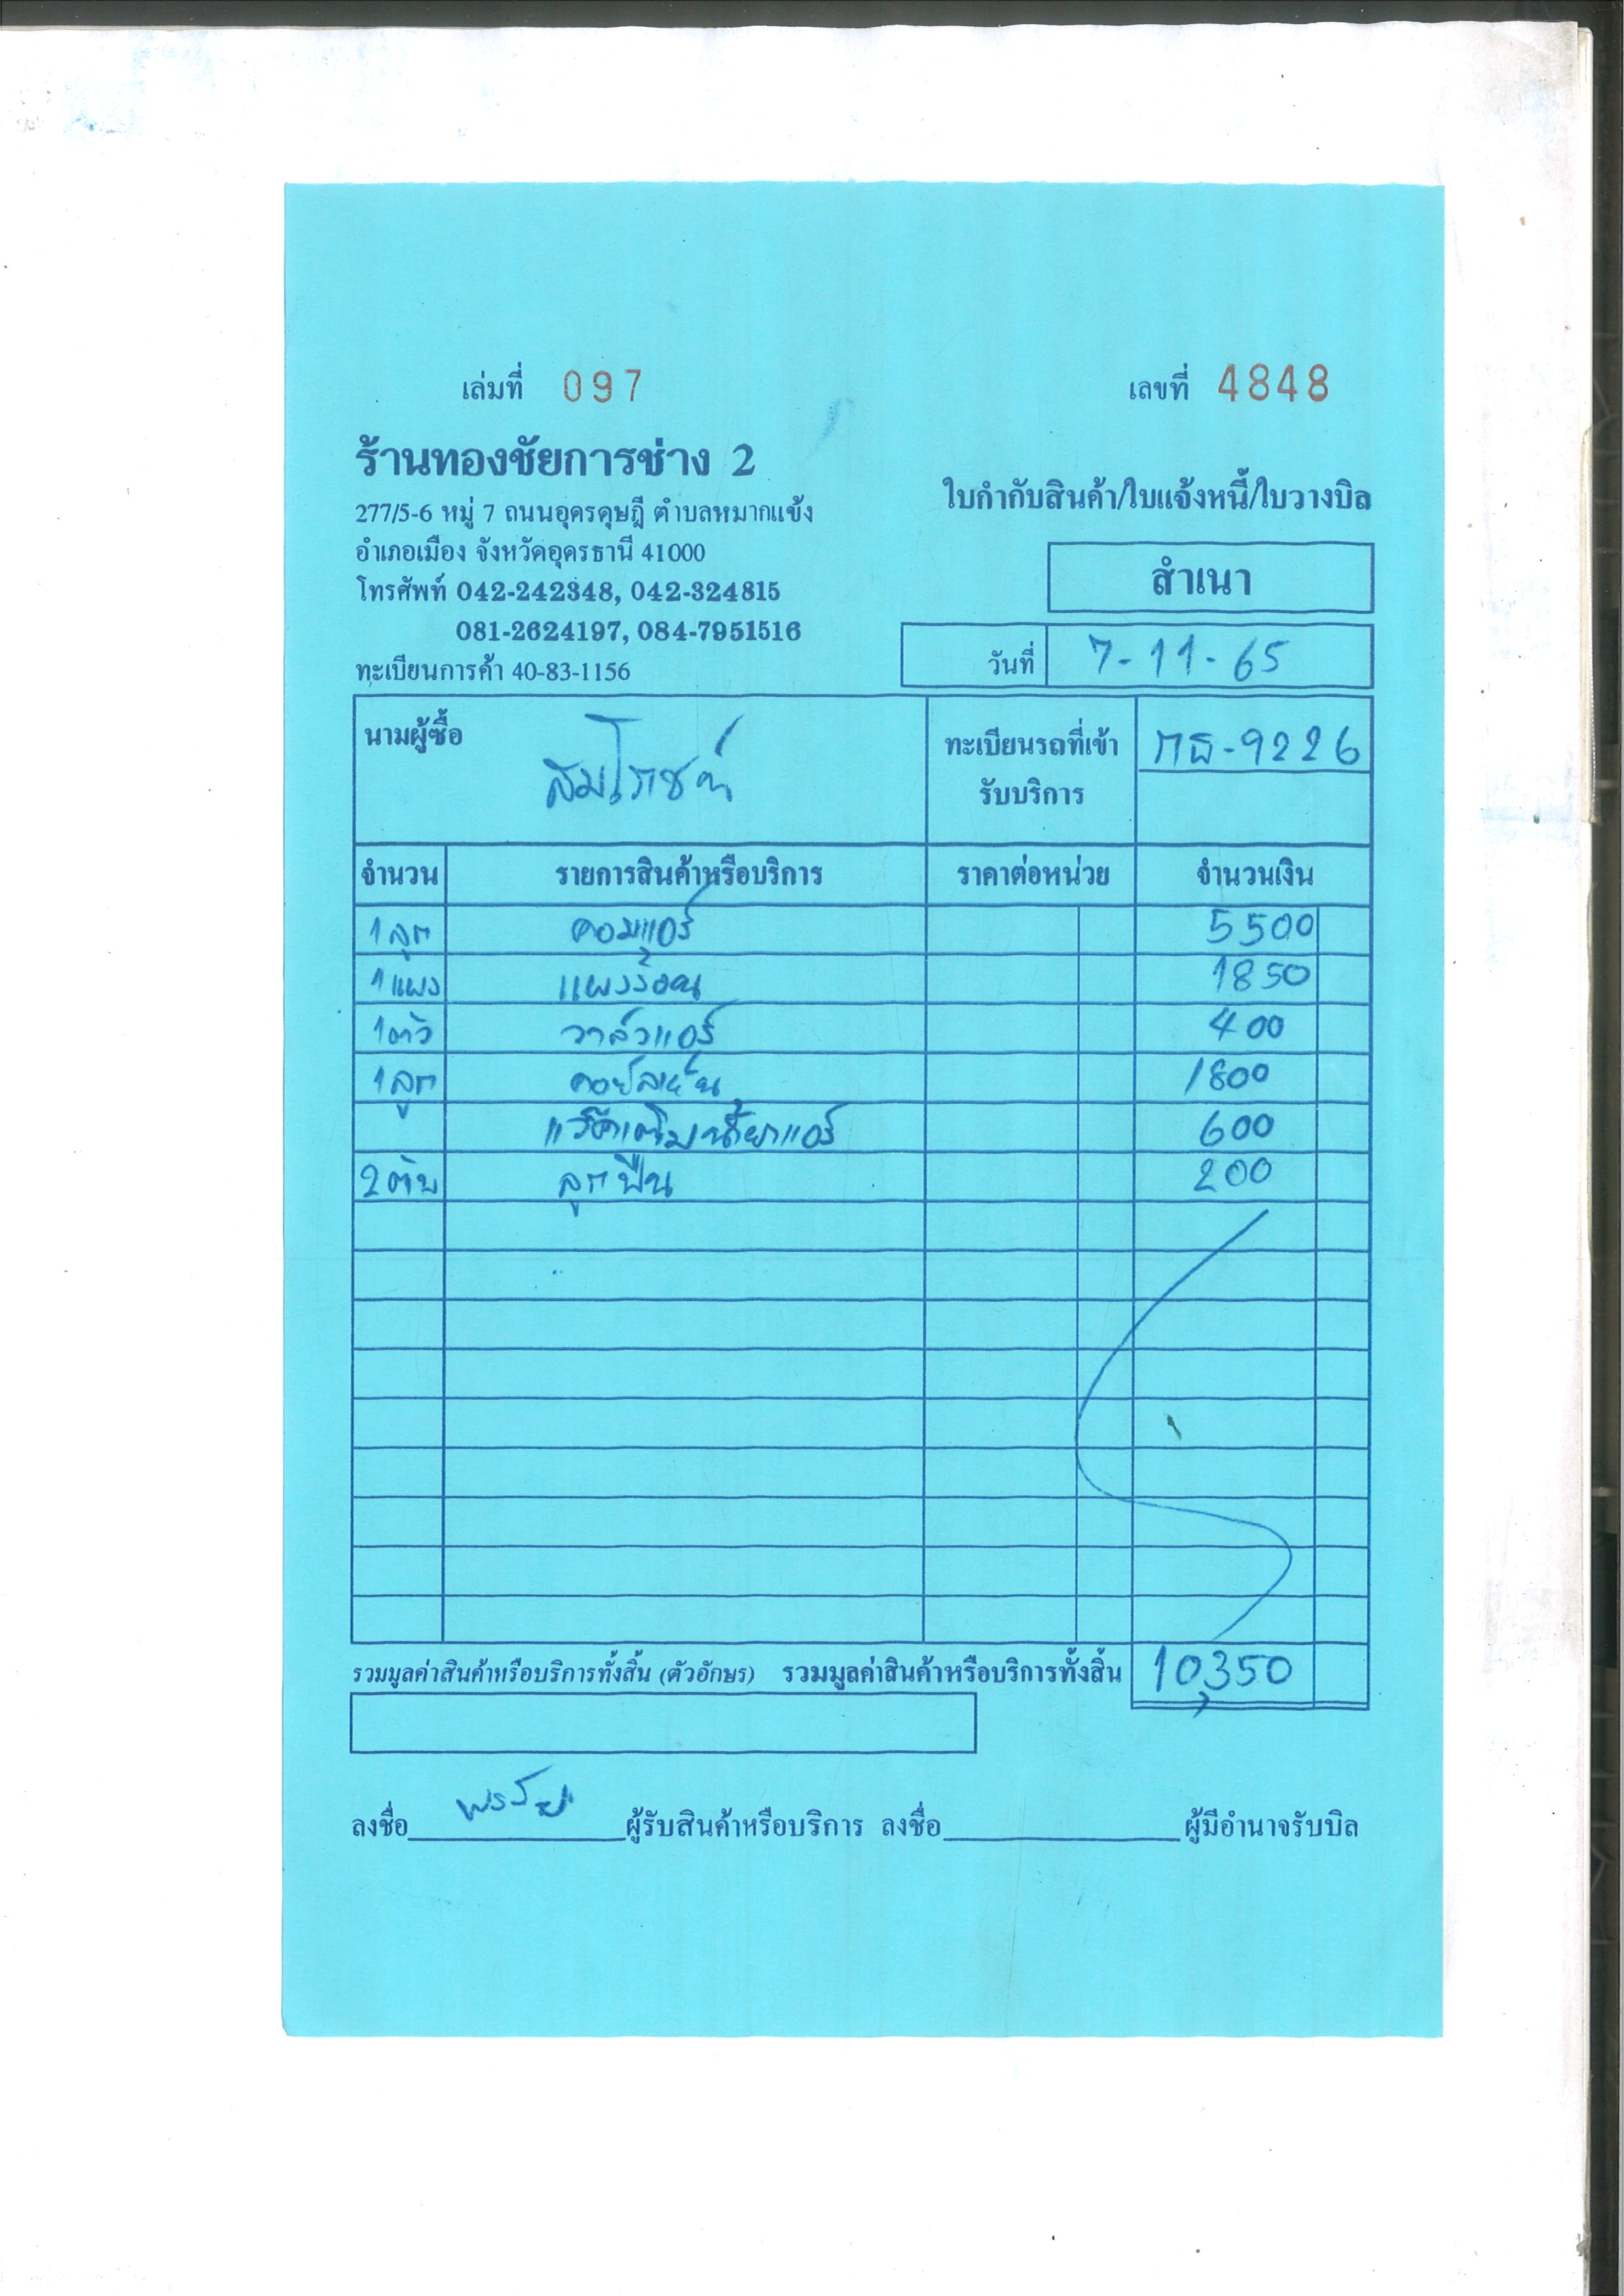 เล่มที่ 097
เลขที่ 4848
ร้านทองชัยการช่าง 2
277/5-6 หมู่ 7 ถนนอุดรดุษฎี ตำบลหมากแข้ง
อำเภอเมือง จังหวัดอุดรธานี 41000
โทรศัพท์ 042-242348, 042-324815
081-2624197, 084-7951516
ทะเบียนการค้า 40-83-1156
ใบกำกับสินค้า/ใบแจ้งหนี้/ใบวางบิล
สำเนา
วันที่ 7-11-65
นามผู้ซื้อ
ทะเบียนรถที่เข้ารับบริการ กธ-9226
จำนวน รายการสินค้าหรือบริการ ราคาต่อหน่วย จำนวนเงิน
1ลูก คอมแอร์ 5500
1แผง แผงร้อน 1850
1ตัว วาล์วแอร์ 400
1ลูก คอยล์เย็น 1800
แว๊คเติมน้ำยาแอร์ 600
2ตับ ลูกปืน 200
รวมมูลค่าสินค้าหรือบริการทั้งสิ้น (ตัวอักษร) รวมมูลค่าสินค้าหรือบริการทั้งสิ้น 10,350
ลงชื่อ ผู้รับสินค้าหรือบริการ ลงชื่อ ผู้มีอำนาจรับบิล